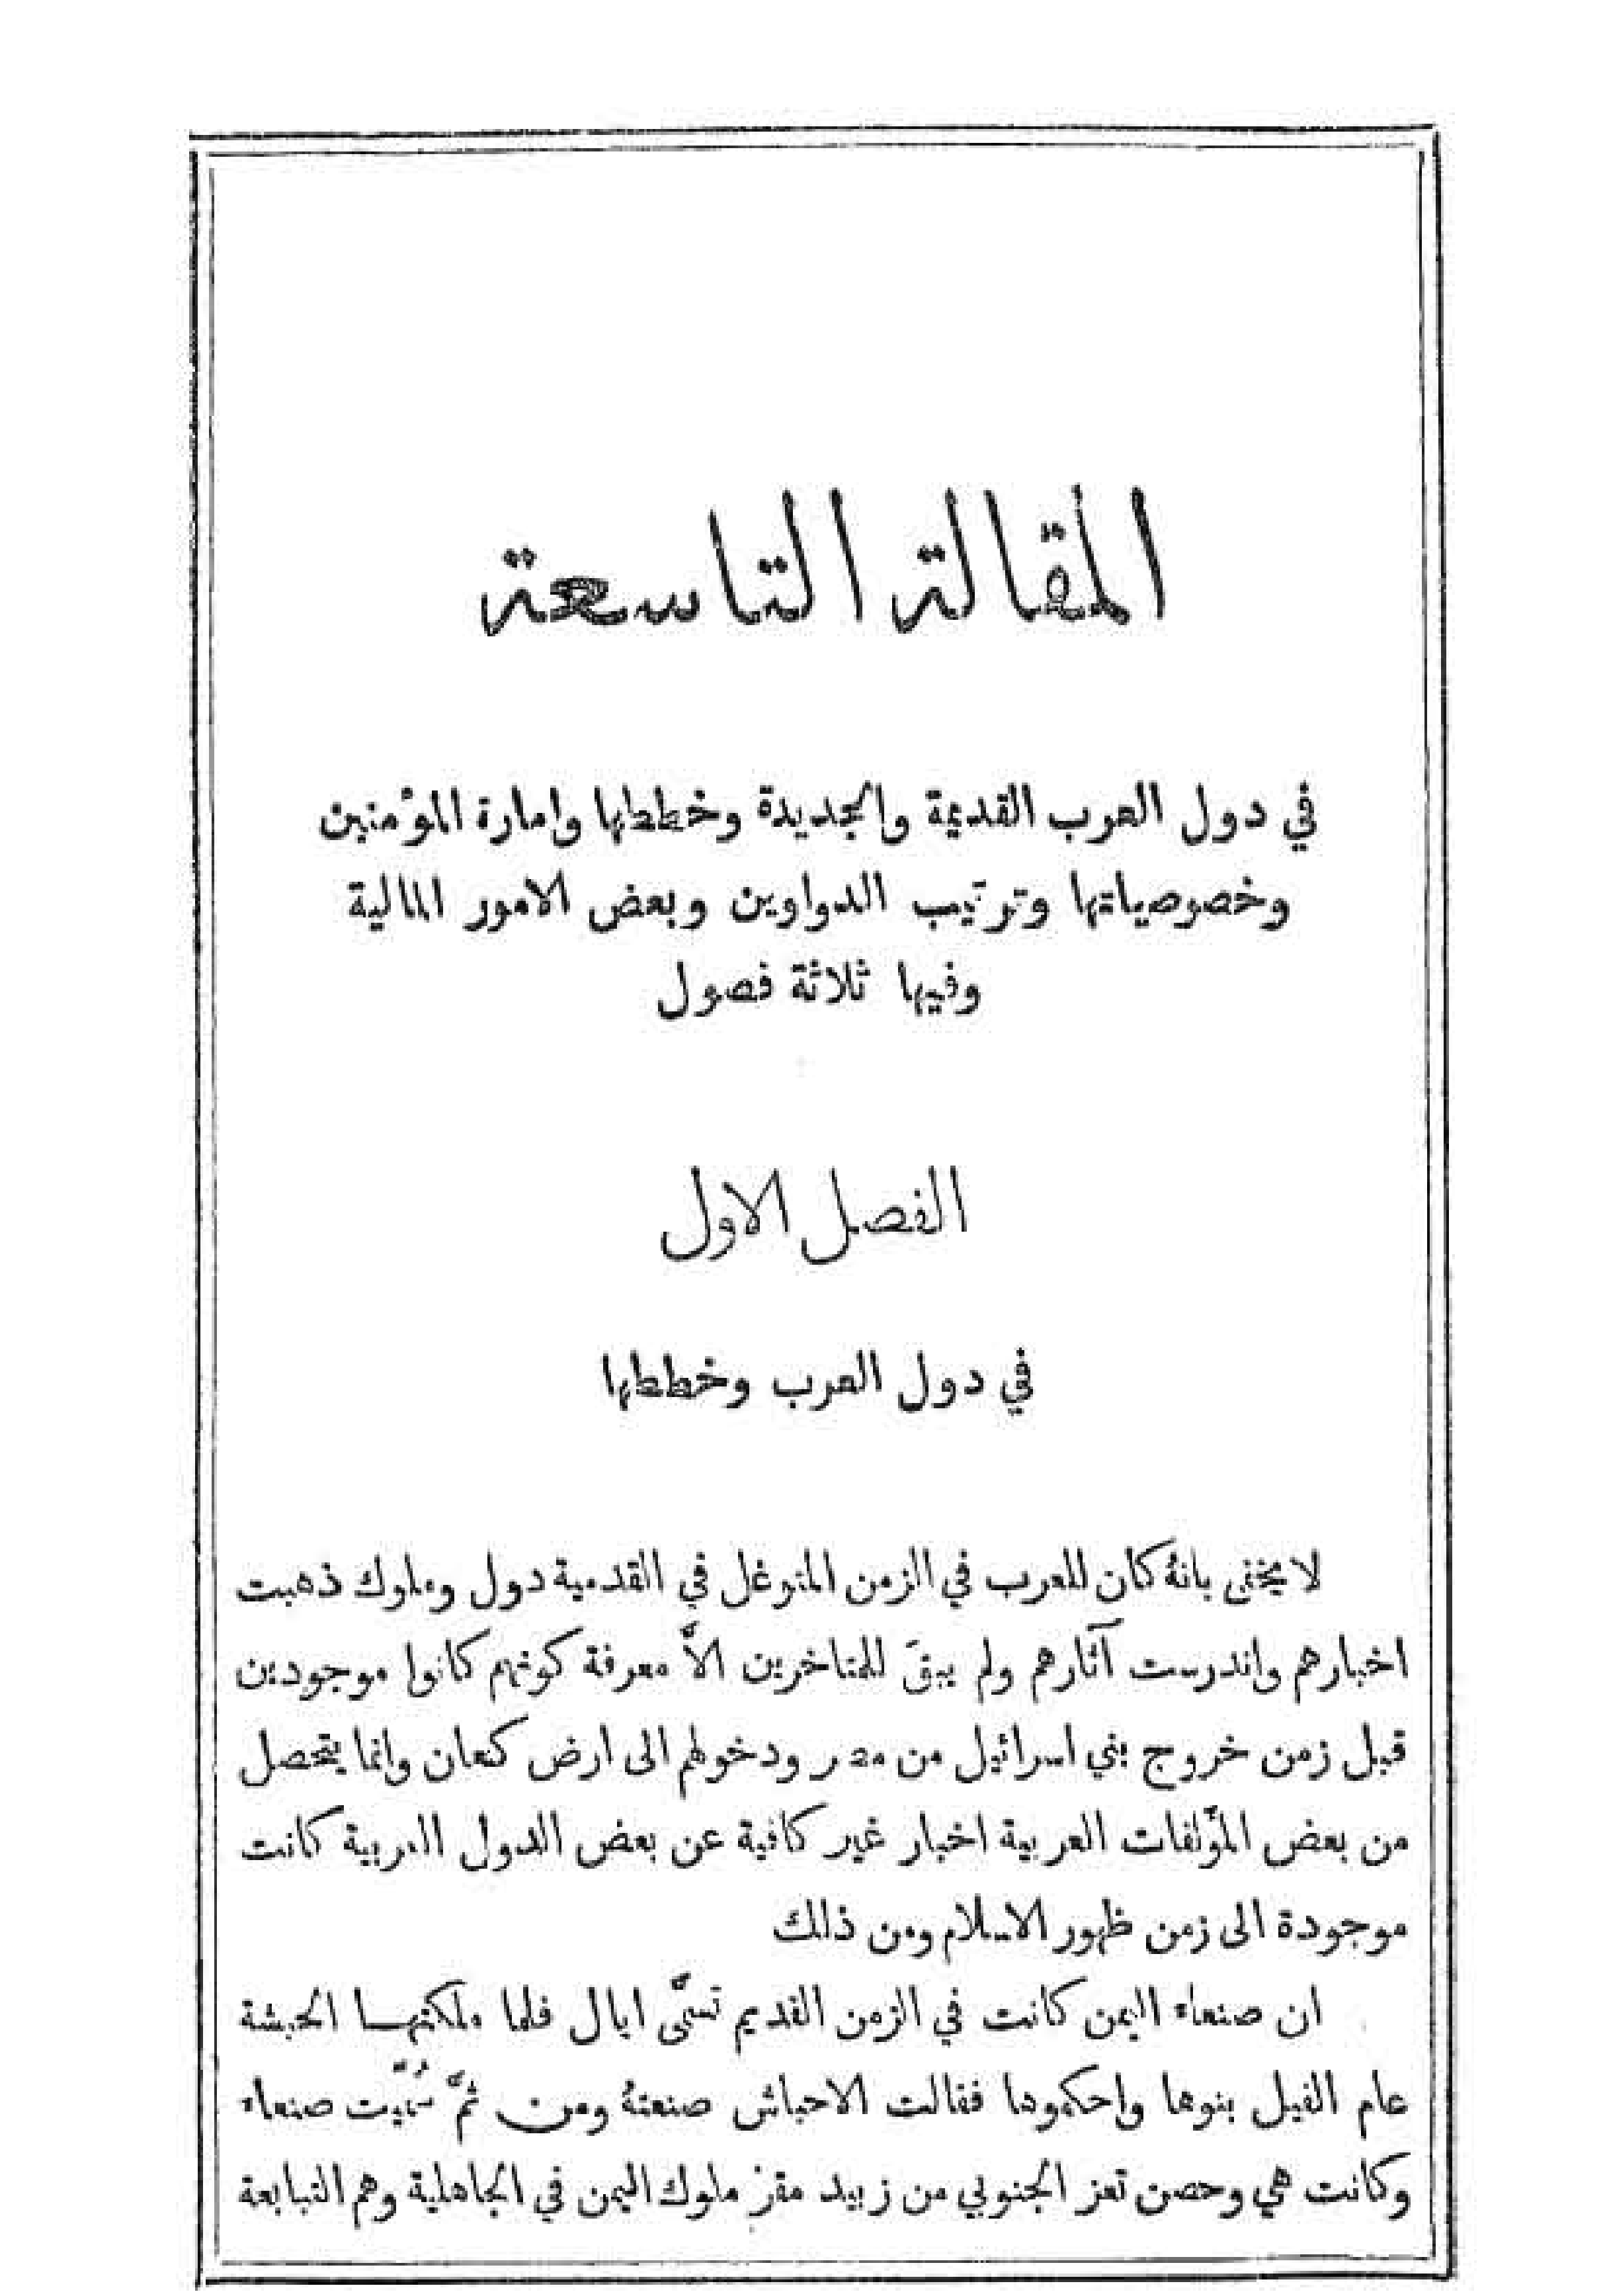 المقالة التاسعة
في دول العرب القديمة والجديدة وخططها وامارة المؤمنين
وخصوصياتها وترتيب الدواوين وبعض الامور المالية
وفيها ثلاثة فصول
الفصل الاول
في دول العرب وخططها
لا يخفى بانهُ كان للعرب في الزمن المتوغل في القدمية دول وملوك ذهبت
اخبارهم واندرست آثارهم ولم يبقَ للمتاخرين الاَّ معرفة كونهم كانوا موجودين
قبل زمن خروج بني اسرائيل من مصر ودخولهم الى ارض كنعان وانما يتحصل
من بعض المؤَلفات العربية اخبار غير كافية عن بعض الدول العربية كانت
موجودة الى زمن ظهور الاسلام ومن ذلك
ان صنعاء اليمن كانت في الزمن القديم تسمَّى ابال فلما ملكتهـا الحبشة
عام الفيل بنوها واحكموها فقالت الاحباش صنعتهُ ومن ثمَّ سُمّيت صنعاء
وكانت هي وحصن تعز الجنوبي من زبيد مقرَّ ملوك اليمن في الجاهلية وهم التبابعة